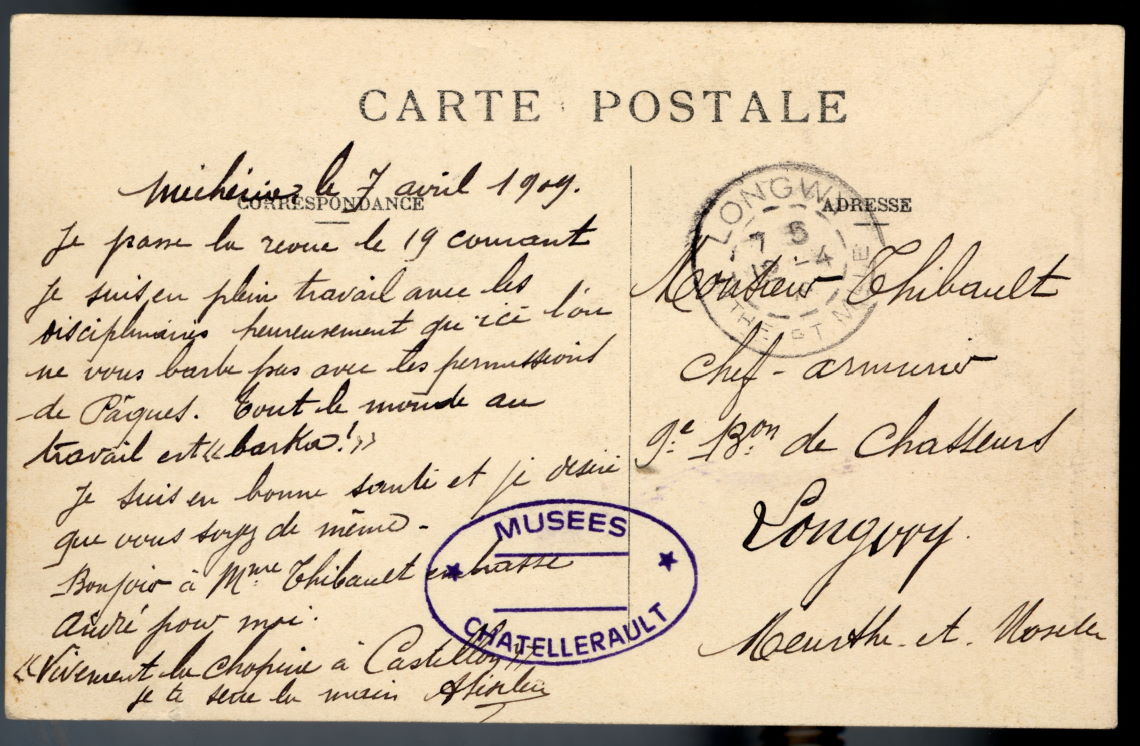 CARTE POSTALE
CORRESPONDANCE
le 7 avril 1909.
Je passe la revue le 19 courant
Je suis en plein travail avec les
disciplinaires heureusement qu'ici l'on
ne vous barbe pas avec les permissions
de Pâques. Tout le monde au
travail est « barka! »
Je suis en bonne santé et je désire
que vous soyez de même -
Bonjour à Mme Thibault embrasse
André pour moi.
« Vivement la chopine à »
je te serre la main
ADRESSE
Monsieur Thibault
Chef-armurier
9e Bon de Chasseurs
Longwy.
Meurthe-et-Moselle
LONGWY
7 5
-4
MTHE ET MELLE
MUSEES
CHATELLERAULT